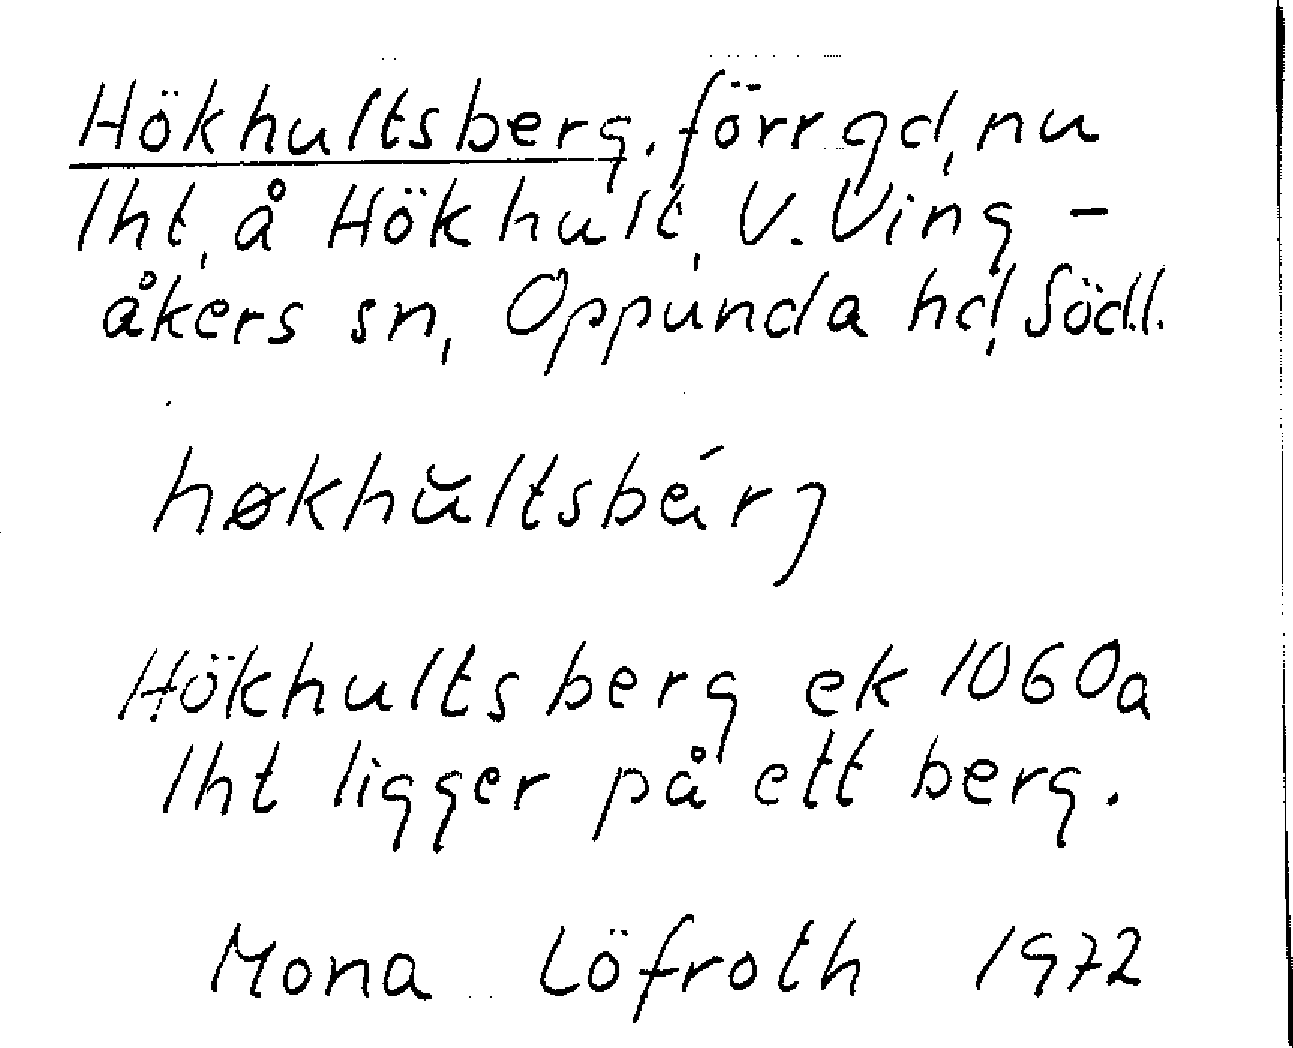 Hökhultsberg, förr gd, nu
lht, å Hökhult, V. Ving-
åkers sn, Oppunda hd, Södl.
høkhŭltsbérȷ
Hökhultsberg ek 1060a
lht ligger på ett berg.
Mona Löfroth 1972